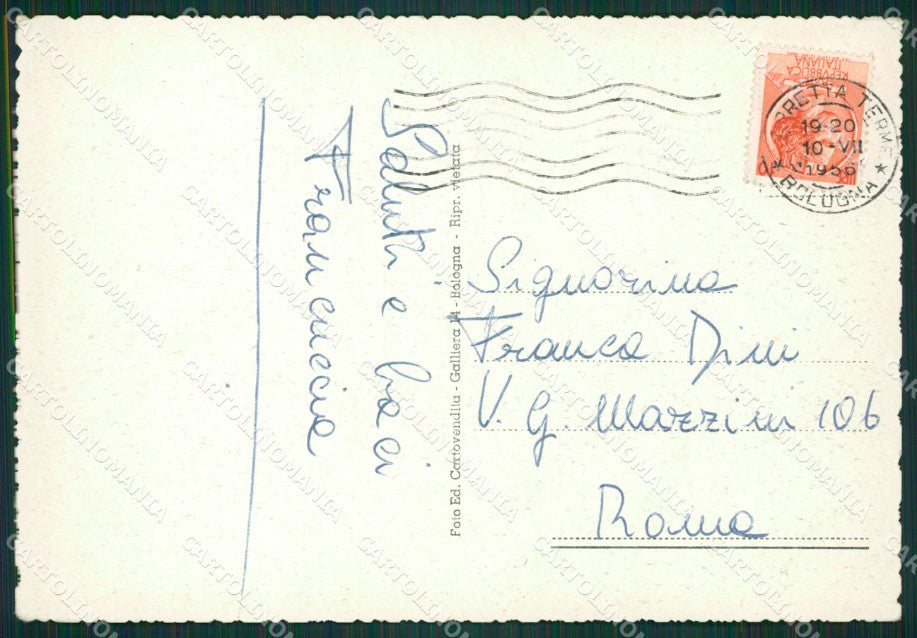 Saluti e baci
Francuccia
Foto Ed. Cartovendita - Galliera 14 - Bologna - Ripr. vietata
REPVBBLICA
ITALIANA
PORRETTA TERME
19-20
10-VII
1956
* BOLOGNA *
Signorina
Franca Dini
V. G. Mazzini 106
Roma
CARTOLINOMANIA